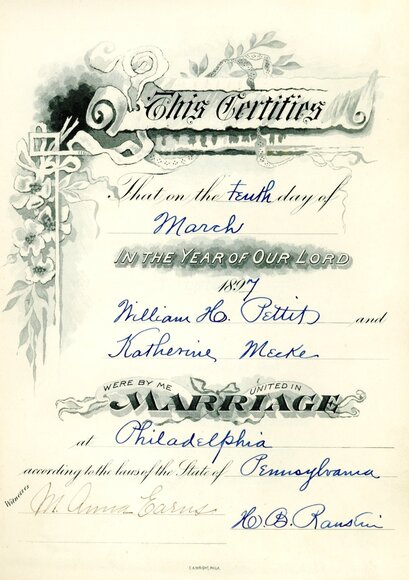 This Certifies
That on the tenth day of
March
IN THE YEAR OF OUR LORD
1897
William H. Pettit and
Katherine Mecke
WERE BY ME UNITED IN
MARRIAGE
at Philadelphia
according to the laws of the State of Pennsylvania
Witnesses
M. Anna
H. B.